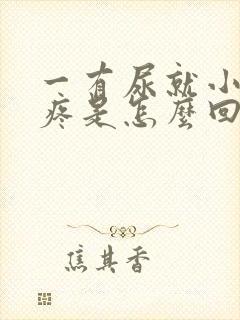 一有尿就小
疼是怎麼回
焦其香